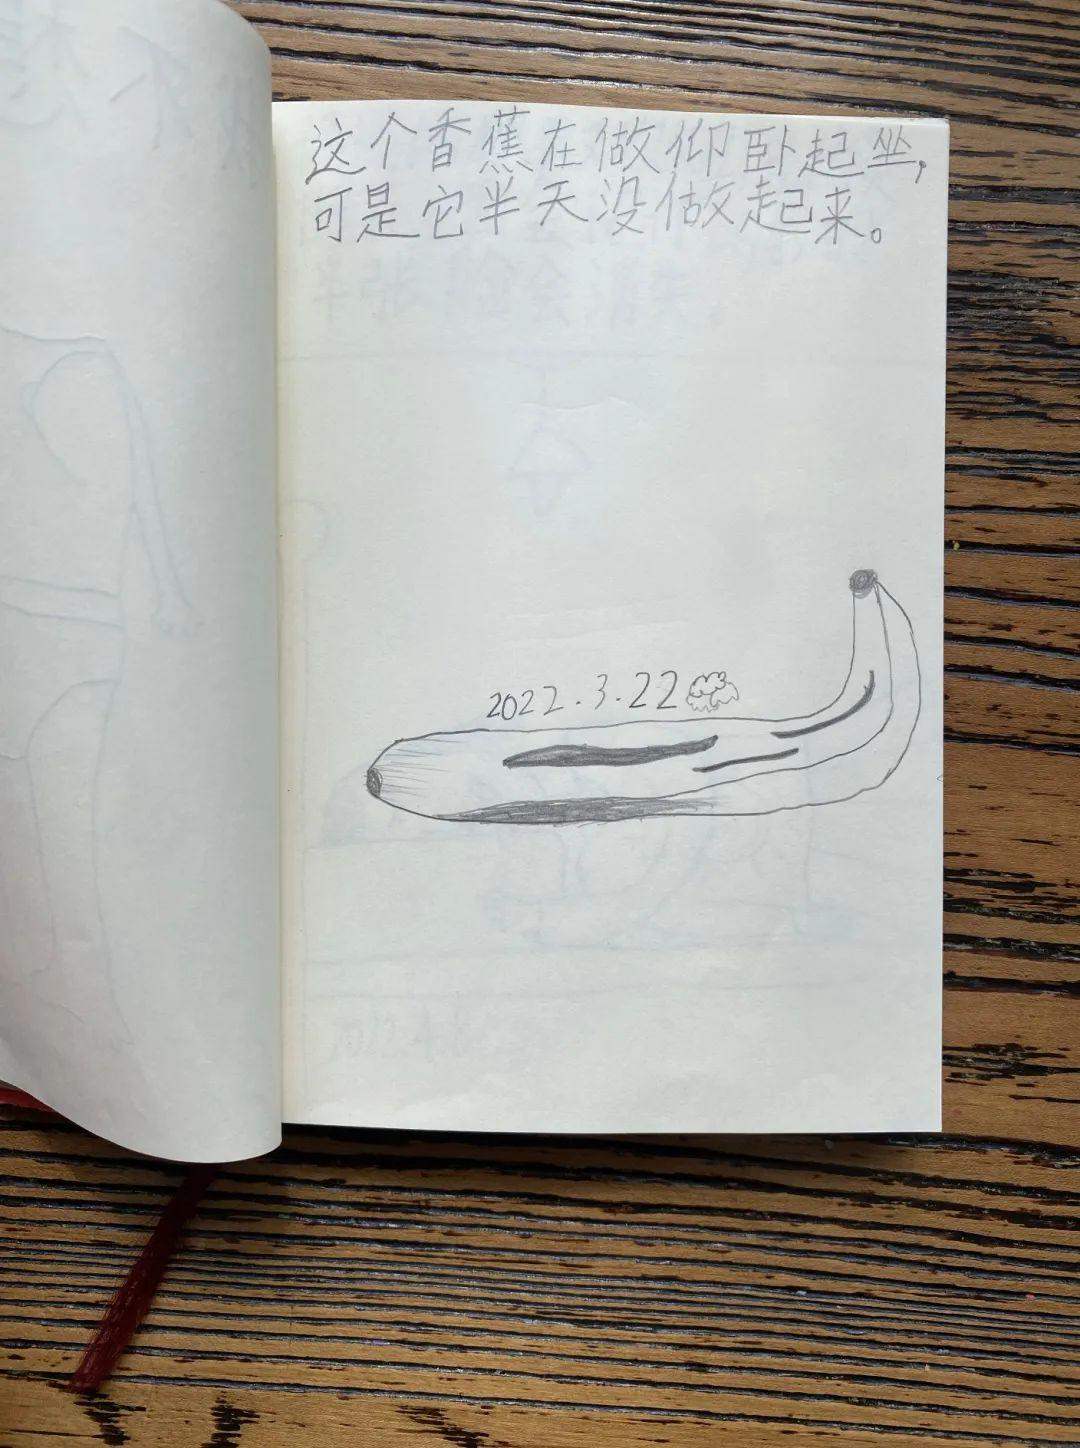 这个香蕉在做仰卧起坐，
可是它半天没做起来。
2022.3.22